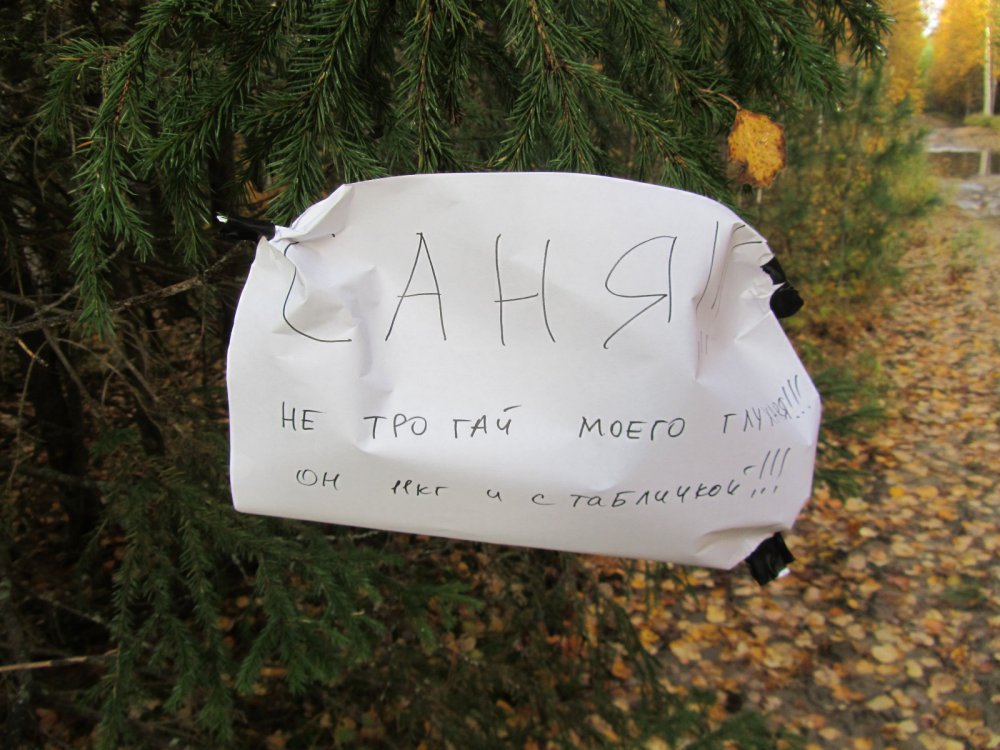 САНЯ!!
НЕ ТРОГАЙ МОЕГО ГЛУХАРЯ!!!
ОН 11кг И С ТАБЛИЧКОЙ!!!